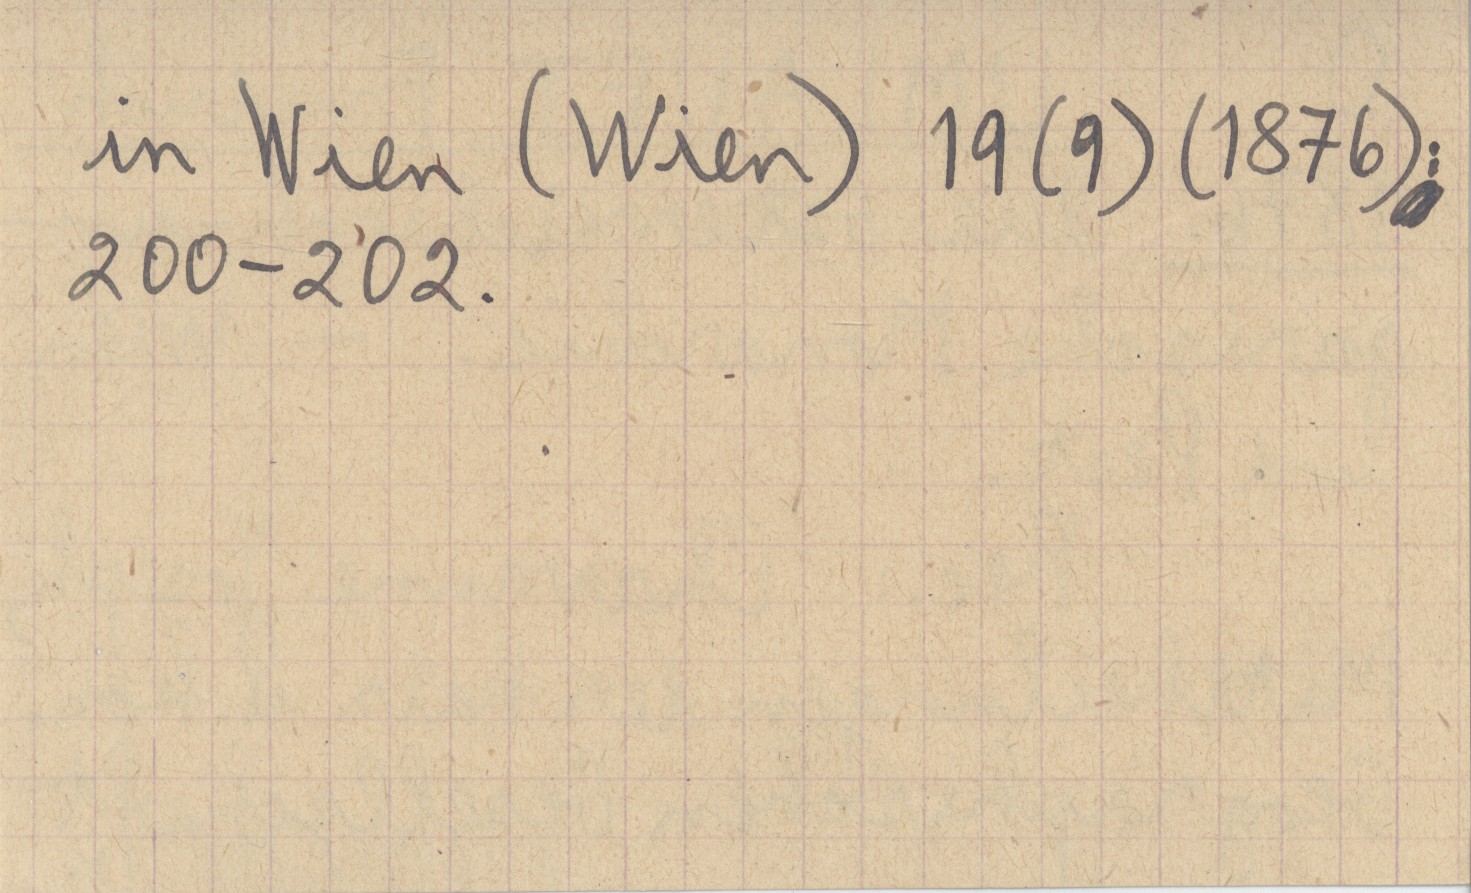 in Wien (Wien) 19(9)(1876):
200-202.